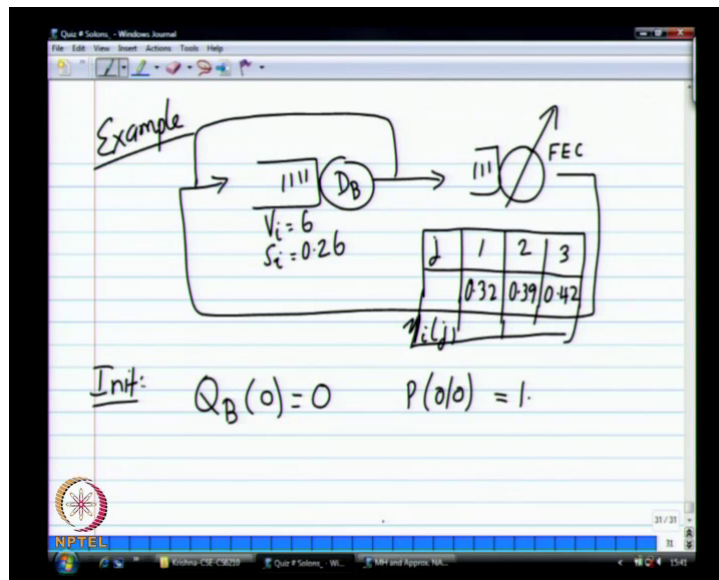 Quiz # Solons_ - Windows Journal
File Edit View Insert Actions Tools Help
Example
D_B
FEC
V_i = 6
S_i = 0.26
j 1 2 3
0.32 0.39 0.42
μ_i(j)
Init: Q_B(0) = 0 P(0/0) = 1.
31 / 31
31
NPTEL
Krishna-CSE-CS6210 Quiz # Solons_ - Wi... MH and Approx. NA... 15:41